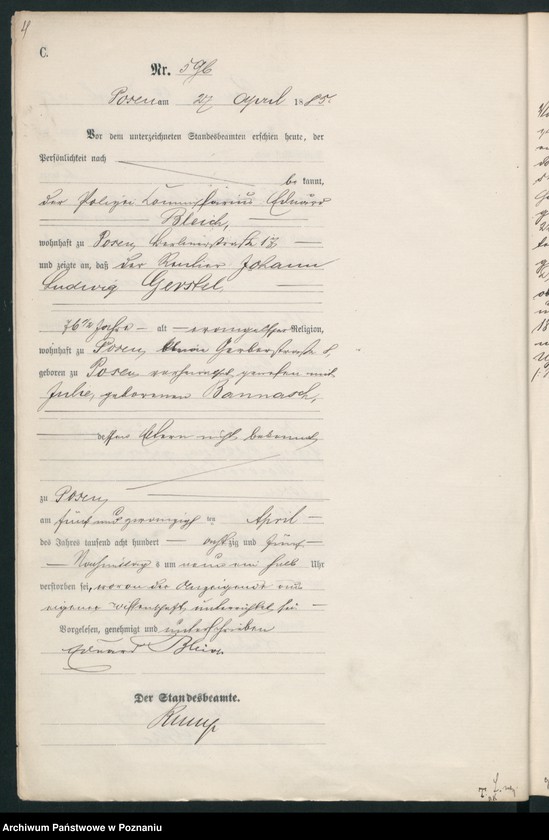 4
C.
Nr. 596
Posen am 27 April 1885.
Vor dem unterzeichneten Standesbeamten erschien heute, der
Persönlichkeit nach
be kannt,
der Polizei Commissarius Eduard
Bleich,
wohnhaft zu Posen Berlinerstraße 12
und zeigte an, daß der Rentier Johann
Ludwig Gerstel
76 1/2 Jahre alt evangelischer Religion,
wohnhaft zu Posen, Gerberstraße
geboren zu Posen, verheirathet gewesen mit
Julie, geborenen Bannasch,
dessen Eltern nicht bekannt
zu Posen
am fünf und zwanzigsten April
des Jahres tausend acht hundert achtzig und fünf
Nachmittags um neun ein halb Uhr
verstorben sei, wovon der Anzeigende aus
eigener Wissenschaft unterrichtet sei
Vorgelesen, genehmigt und unterschrieben
Eduard Bleich
Der Standesbeamte.
Archiwum Państwowe w Poznaniu